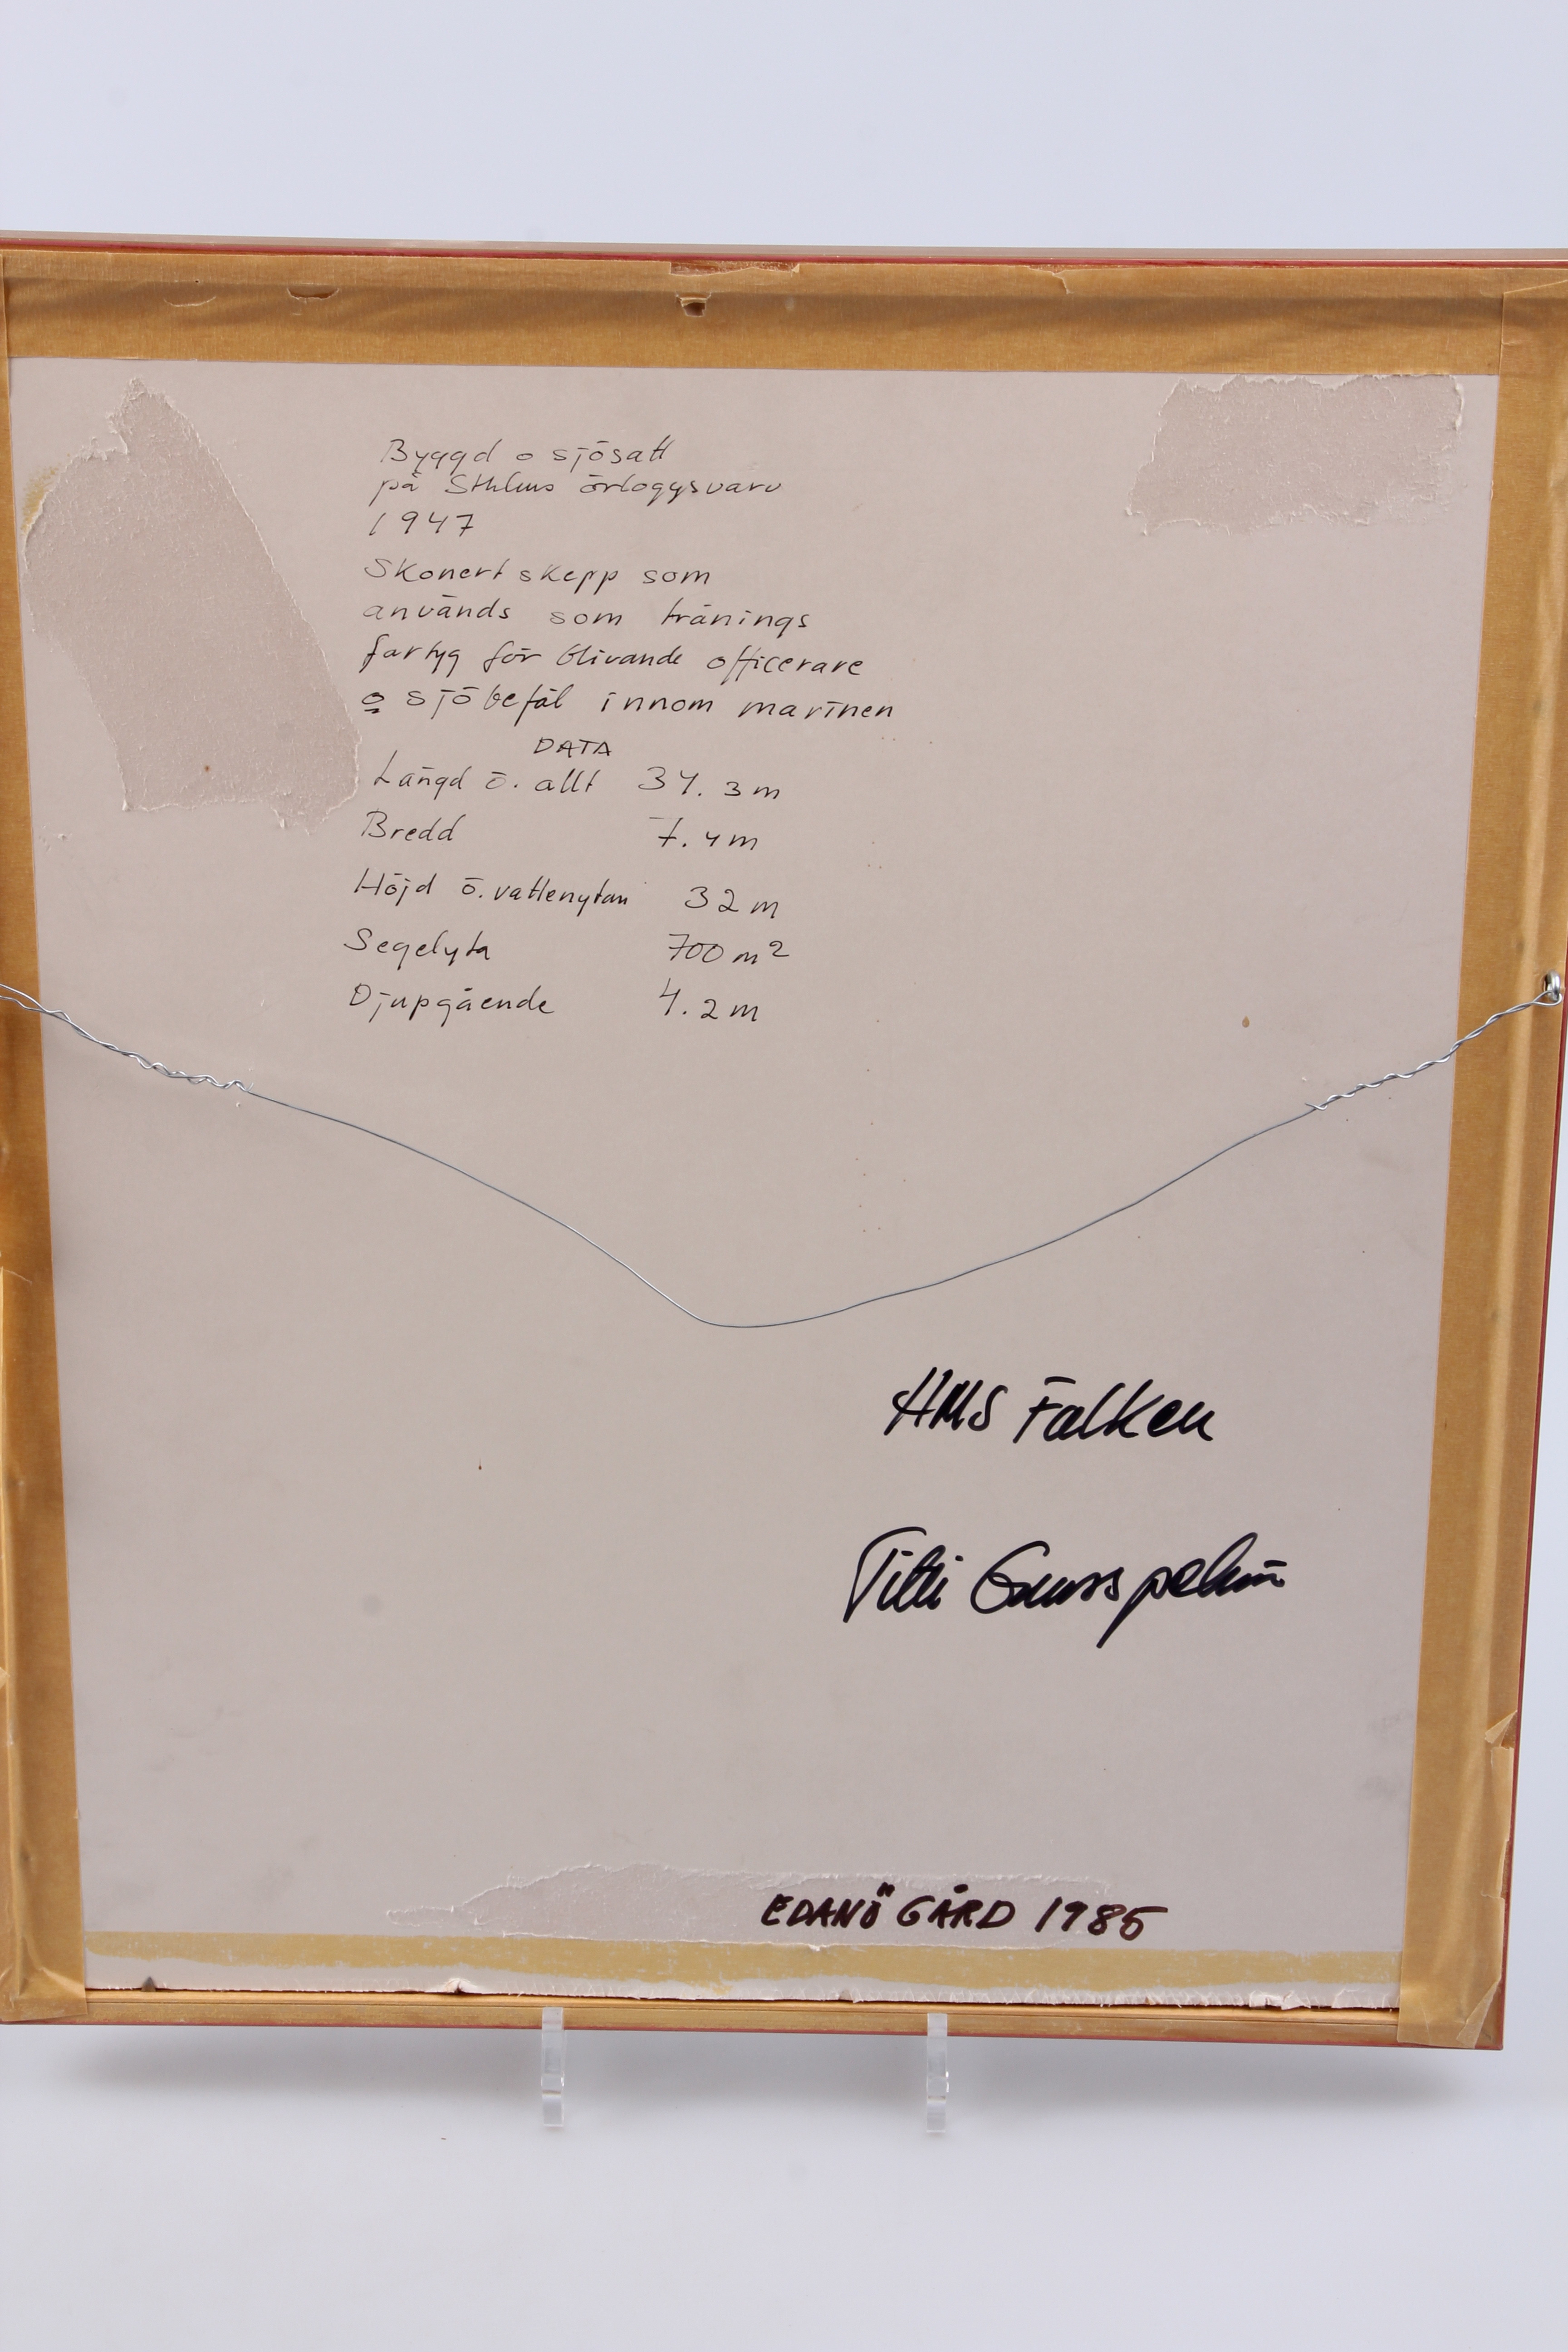 Byggd o sjösatt
på Sthlms örlogysvarv
1947
Skonertskepp som
används som tränings
fartyg för blivande officerare
o sjöbefäl innom marinen
DATA
Längd ö. allt 34.3 m
Bredd 7.4 m
Höjd ö. vattenytan 32 m
Segelyta 700 m²
Djupgående 4.2 m
HMS Falken
Titti
EDANÖ GÅRD 1985